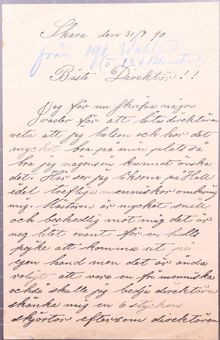 Skara den 31/7 90
från 196 Wahlén
Bäste Direktör!!
Jag får nu skrifva några
rader för att låta direktören
veta att jag hälsan och har det
mycket bra på min plats så
bra jag någonsin kunnat önska
det. Här ser jag liksom på Hall
idel trefliga menniskor omkring
mig. Mästaren är mycket snäll
och beskedlig mot mig det är
nog litet ovant för en Halls
pojke att komma ut på
egen hand men det är ändå
roligt att vara en fri menniska
också skulle jag bedja direktören
skänka mig en 6 stycken
skjortor eftersom direktören